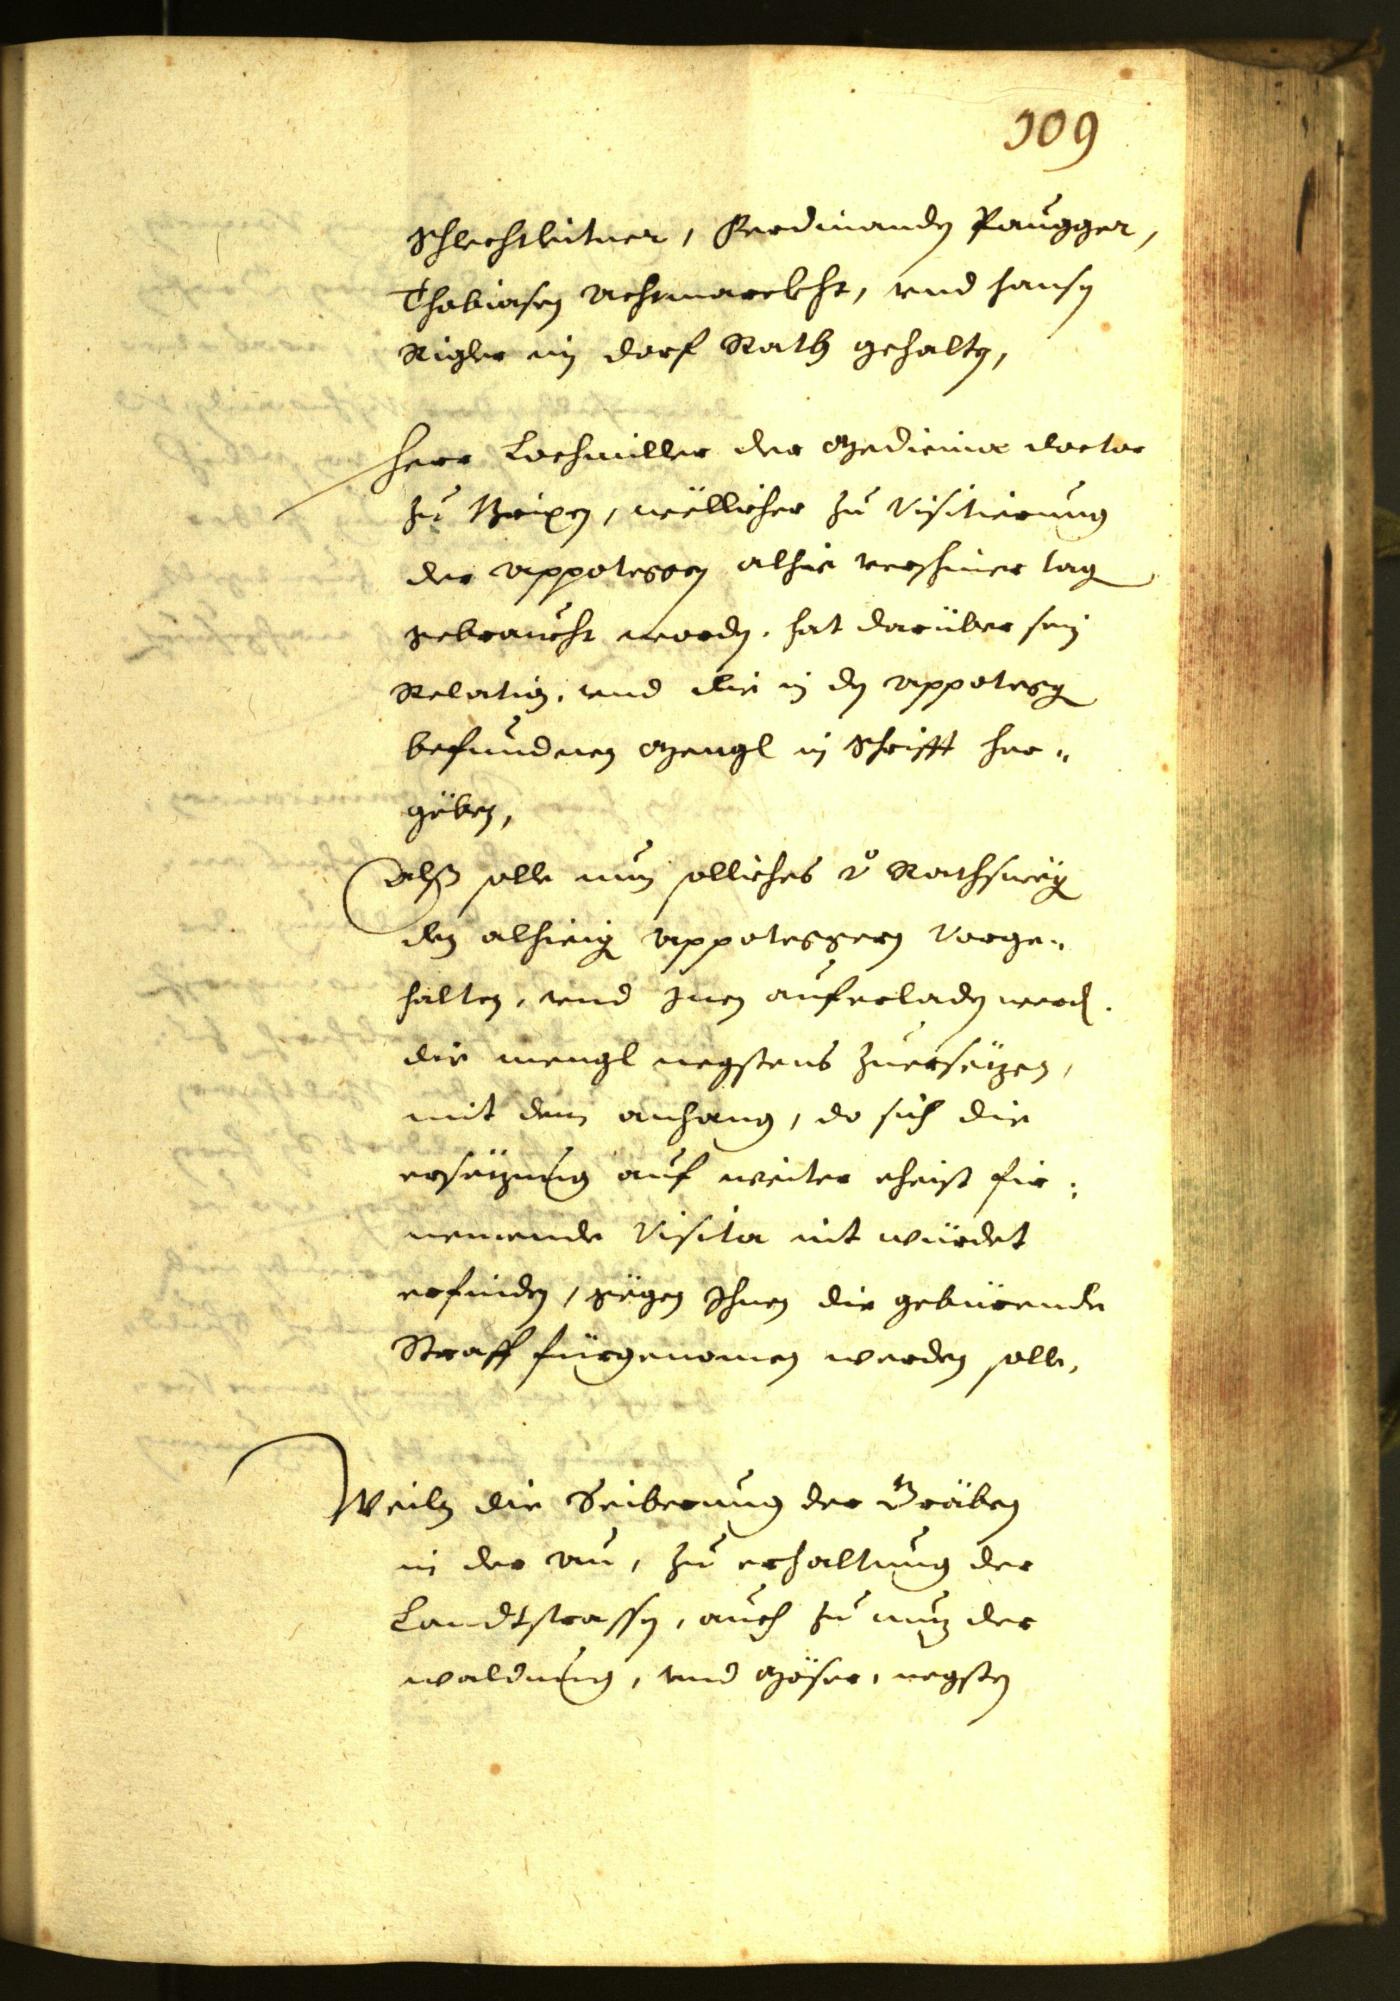 109
Schlechtleitner, Ferdinanden Paugger,
Thobiasen Achtmarckht, und Hansen
Rigler im dorf Rath gehalten,
Herr Lochmiller der Medicina doctor
zu Brixen, wëllicher zu Visitierung
der Appotegge alhie verschiner tag
gebraucht worden, hat darüber sein
Relation, und die in den Appotegge
befundnen Mengl in Schrifft her¬
gëben,
Alß solle nun solliches von Rathswëg
den alhieig Appoteggern vorge¬
halten, und Inen auferladen werd.
die mengl negstens zuersëtzen,
mit dem anhang, do sich die
ersëtzung auf weiter eheist fir¬
nemende Visita nit würdet
erfinden, gëgen Ihnen die gebürende
Straff fürgenomen werden solle,
Weiln die Seiberung der Gräben
in der Au, zu erhaltung der
Landtstrassen, auch zu nuz der
waldung, und Möser, negsten